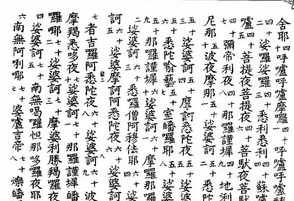 舍耶四十呼嚧呼嚧摩囉四十呼嚧呼
四十娑囉娑囉四十悉利悉利四十蘇嚧
嚧四十菩提夜菩提夜四十菩馱夜菩馱
四十彌帝利夜四十那囉謹墀四十地利
尼那五十波夜摩那五十娑婆訶五十悉陀
五十娑婆訶五十摩訶悉陀夜五十娑婆
五十悉陀喻藝五十室皤囉耶五十
五十那囉謹墀六十娑婆訶六十摩囉那
六十娑婆訶六十悉囉僧阿穆佉耶六十
訶六十娑婆摩訶阿悉陀夜六十娑婆訶
六十者吉囉阿悉陀夜六十娑婆訶六十波
摩羯悉哆夜七十娑婆訶七十那囉謹墀皤
囉哪七十娑婆訶七十摩婆利勝羯囉夜
七十娑婆訶七十南無喝囉怛那哆囉夜耶
七十南無阿唎哪七十婆嚧吉帝七十爍皤